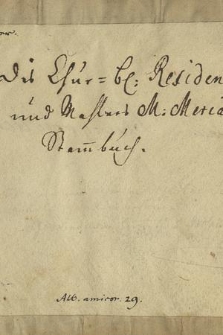 Dis Chur=bl: Residen
und Mahlers M: Meria
Stam̄buch.
Alb. amicor. 29.